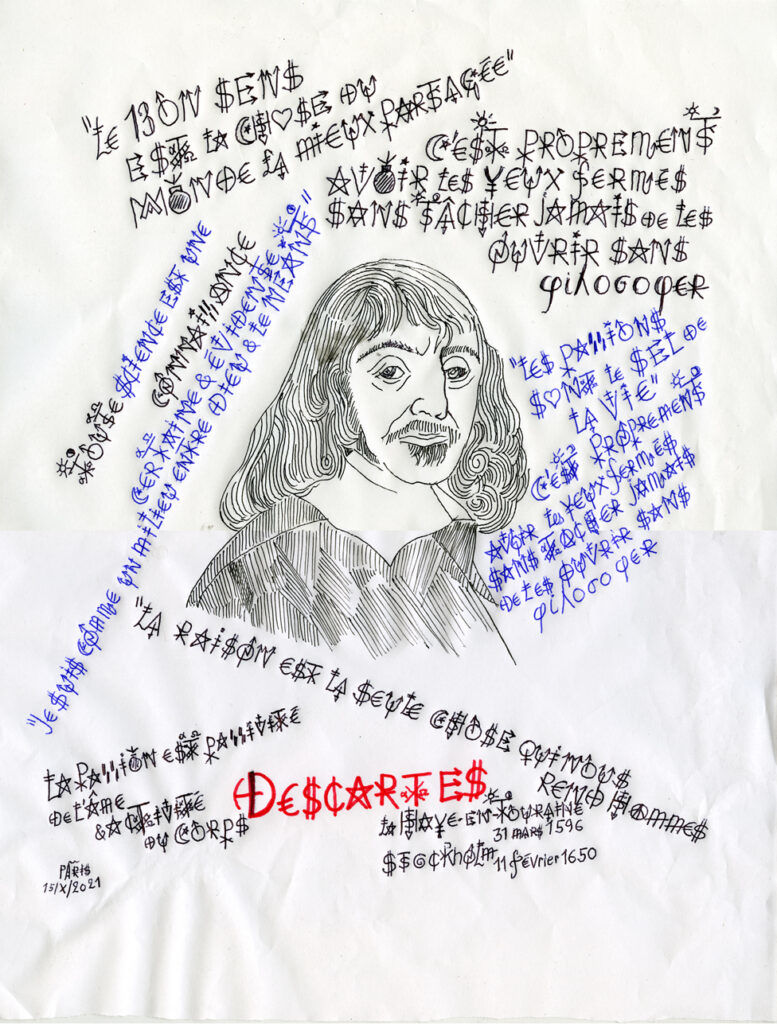 "LE BON SENS
EST LA CHOSE DU
MONDE LA MIEUX PARTAGÉE"
C'EST PROPREMENT
AVOIR LES YEUX FERMÉS
SANS TÂCHER JAMAIS DE LES
OUVRIR SANS
φιλοσοφER
TOUTE SCIENCE EST UNE
CONNAISSANCE
CERTAINE & ÉVIDENTE
"JE SUIS COMME UN MILIEU ENTRE DIEU & LE NÉANT"
"LES PASSIONS
SONT LE SEL DE
LA VIE"
C'EST PROPREMENT
AVOIR LES YEUX FERMÉS
SANS TÂCHER JAMAIS
DE LES OUVRIR SANS
φιλοσοφER
"LA RAISON EST LA SEULE CHOSE QUI NOUS
REND HOMMES
LA PASSION EST PASSIVITÉ
DE L'ÂME
& ACTIVITÉ
DU CORPS
DESCARTES
LA HAYE-EN-TOURAINE
31 MARS 1596
STOCKhOLM 11 février 1650
PARIS
15/X/2021